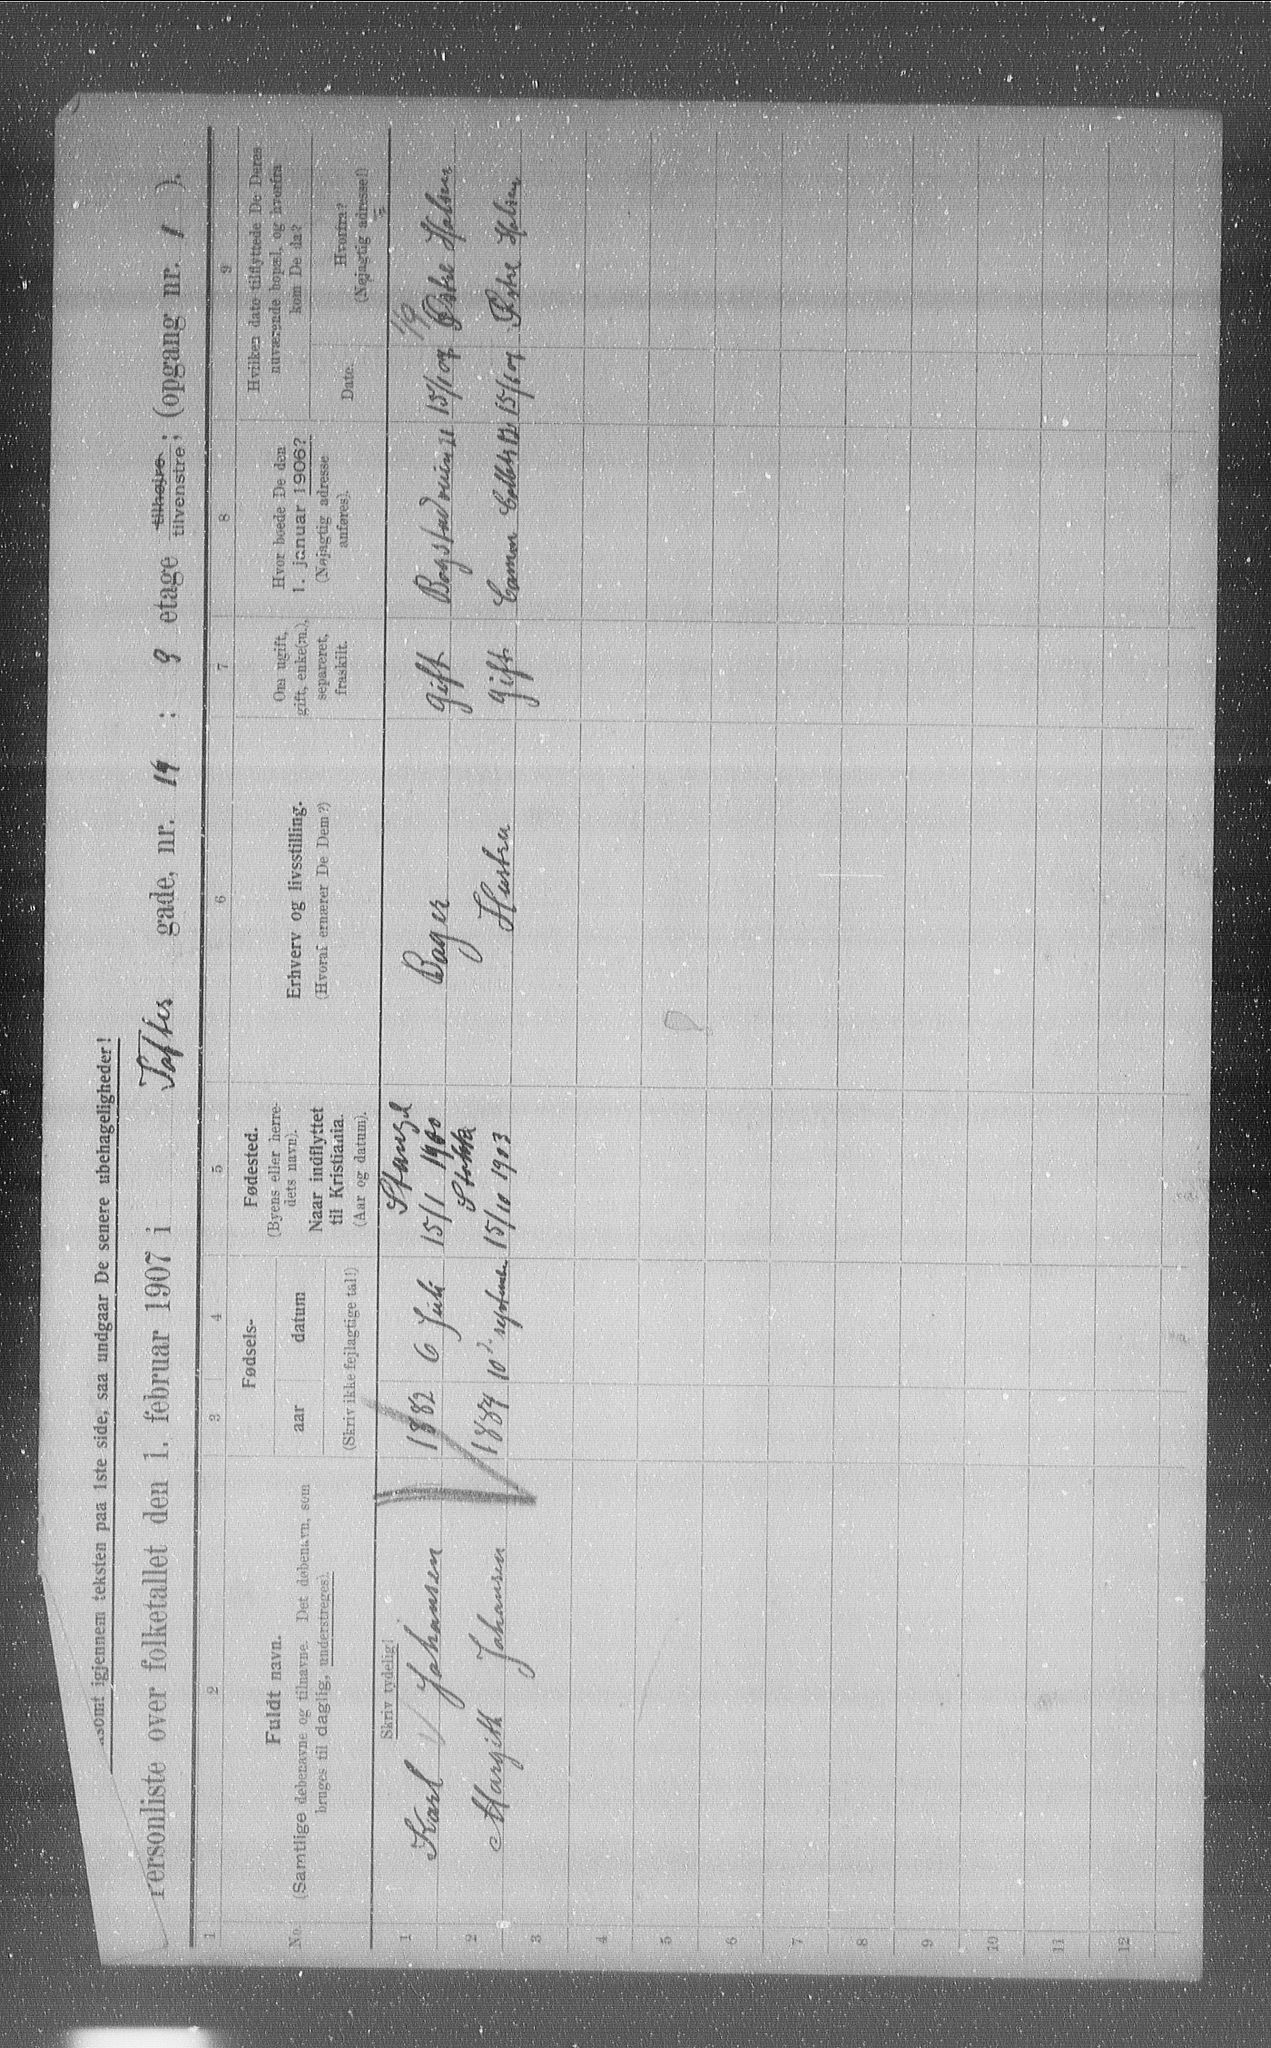 læsomt igjennem teksten paa 1ste side, saa undgaar De senere ubehageligheder!
Personliste over folketallet den 1. februar 1907 i Toftes gade, nr. 14 ; 9 etage tilhøjre tilvenstre; (opgang nr. 1 ).
1 2 3 4 5 6 7 8 9
No.
Fuldt navn.
(Samtlige døbenavne og tilnavne. Det døbenavn, som
bruges til daglig, understreges).
Fødsels-
aar datum
(Skriv ikke fejlagtige tal!)
Fødested.
(Byens eller herre-
dets navn).
Naar indflyttet
til Kristiania.
(Aar og datum).
Erhverv og livsstilling.
(Hvoraf ernærer De Dem?)
Om ugift,
gift, enke(m.),
separeret,
fraskilt.
Hvor boede De den
1. januar 1906?
(Nøjagtig adresse
anføres).
Hvilken dato tilflyttede De Deres
nuværende bopæl, og hvorfra
kom De da?
Date.
Hvorfra?
(Nøjagtig adresse!)
Skriv tydelig!
1 Karl Johansen 1882 6 Juli Stange 15/1 1900 Bager gift 15/1 07 Østre Halsen
2 Margith Johansen 1884 10 september 15/10 1903 Hustru gift 15/1 07 Østre Halsen
3
4
5
6
7
8
9
10
11
12